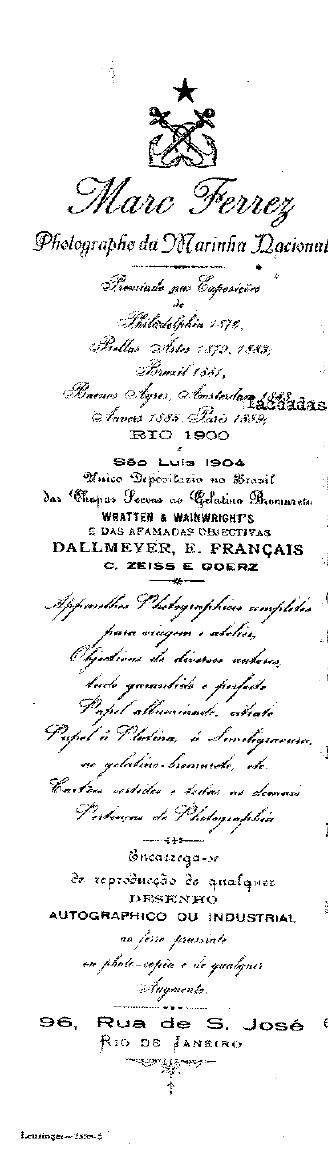 Marc Ferrez
Photographo da Marinha Nacional
Premiado nas Exposições
de
Philadelphia 1876,
Bellas Artes 1879, 1883,
Brazil 1881,
Buenos Ayres, Amsterdam 1883
fachadas
Anvers 1885, Paris 1889,
RIO 1900
e
São Luis 1904
Unico Depositario no Brazil
das Chapas Seccas ao Gelatino Bromureto
WRATTEN & WAINWRIGHT'S
E DAS AFAMADAS OBJECTIVAS
DALLMEYER, E. FRANÇAIS
C. ZEISS E GOERZ
Apparelhos Photographicos completos
para viagem e atelier,
Objectivas de diversos autores,
tudo garantido e perfeito
Papel albuminado, citrato
Papel á Platina, á
ao gelatino-bromureto, etc.
Cartões sortidos e todas as demais
Pertenças de Photographia
Encarrega-se
de reproducção de qualquer
DESENHO
AUTOGRAPHICO OU INDUSTRIAL
ao ferro prussiato
ou photo-copia e de qualquer
Augmento.
96, Rua de S. José
RIO DE JANEIRO
Leuzinger